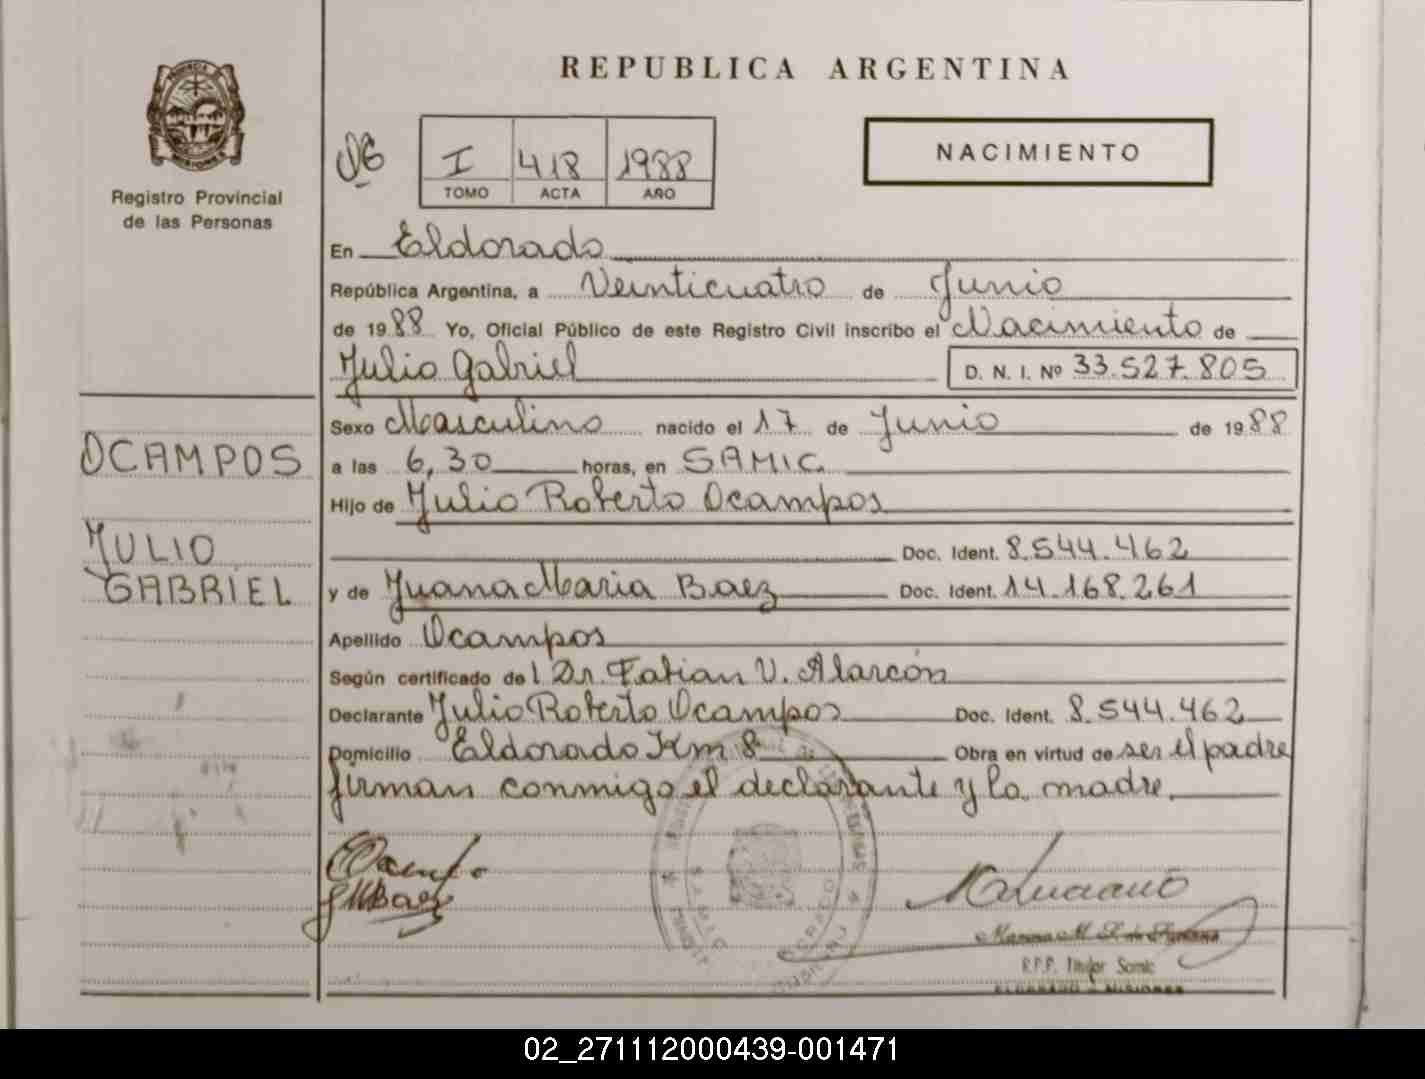 REPUBLICA ARGENTINA
PROVINCIA DE
MISIONES
Registro Provincial
de las Personas
I 418 1988
TOMO ACTA AÑO
NACIMIENTO
En Eldorado
República Argentina, a Veinticuatro de Junio
de 1988 Yo, Oficial Público de este Registro Civil inscribo el Nacimiento de
Julio Gabriel D. N. I. Nº 33.527.805
Sexo Masculino nacido el 17 de Junio de 1988
OCAMPOS
a las 6,30 horas, en SAMIC
Hijo de Julio Roberto Ocampos
JULIO
Doc. Ident. 8.544.462
GABRIEL
y de Juana Maria Baez Doc. Ident. 14.168.261
Apellido Ocampos
Según certificado de l Dr. Fabian V. Alarcón
Declarante Julio Roberto Ocampos Doc. Ident. 8.544.462
Domicilio Eldorado Km 8 Obra en virtud de ser el padre
firman conmigo el declarante y la madre
Ocampo
JMBaez
R.P.P. Titular Samic
ELDORADO - MISIONES
02_271112000439-001471